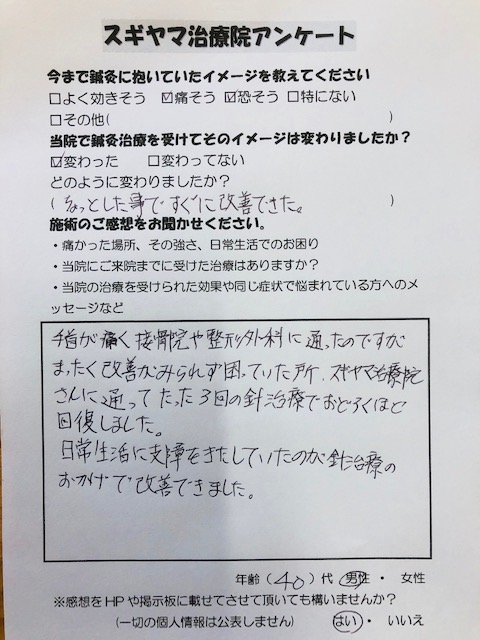 スギヤマ治療院アンケート
今まで鍼灸に抱いていたイメージを教えてください
□よく効きそう ☑痛そう ☑恐そう □特にない
□その他( )
当院で鍼灸治療を受けてそのイメージは変わりましたか?
☑変わった □変わってない
どのように変わりましたか?
(ちょっとした事ですぐに改善できた。 )
施術のご感想をお聞かせください。
・痛かった場所、その強さ、日常生活でのお困り
・当院にご来院までに受けた治療はありますか?
・当院の治療を受けられた効果や同じ症状で悩まれている方へのメ
ッセージなど
手首が痛く接骨院や整形外科に通ったのですが
まったく改善がみられず困っていた所、スギヤマ治療院
さんに通ってたった3回の針治療でおどろくほど
回復しました。
日常生活に支障をきたしていたのが針治療の
おかげで改善できました。
年齢(40)代 男性・ 女性
※感想をHPや掲示板に載せてさせて頂いても構いませんか?
(一切の個人情報は公表しません) はい ・ いいえ